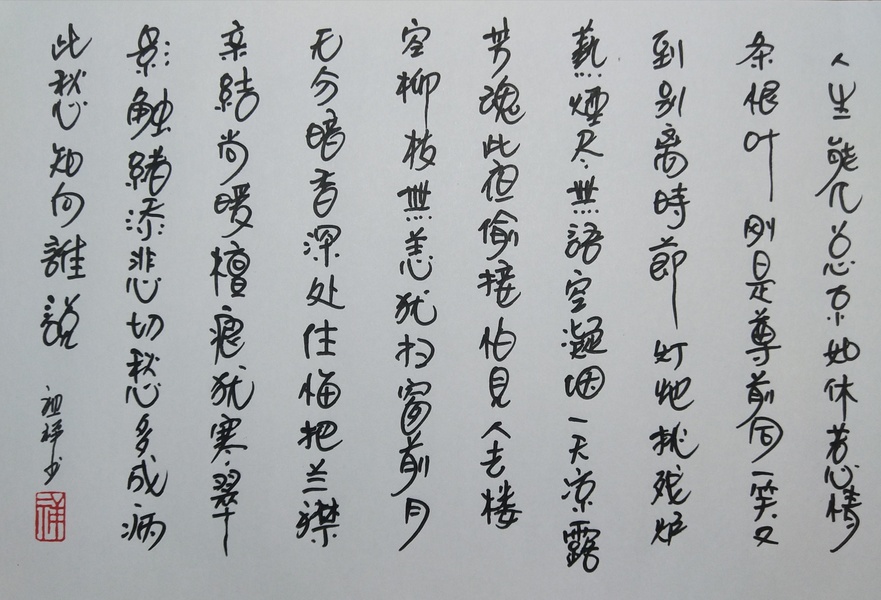 人生能几总不如休惹情
条恨叶刚是尊前同一笑又
到别离時節灯灺挑残炉
爇煙尽無語空凝咽一天凉露
芳魂此夜偷接怕見人去楼
空柳枝無恙犹扫窗前月
无分暗香深处住悔把兰襟
亲結尚暖檀痕犹寒翠
影触緒添悲切愁多成病
此愁知向誰說
祖祥书